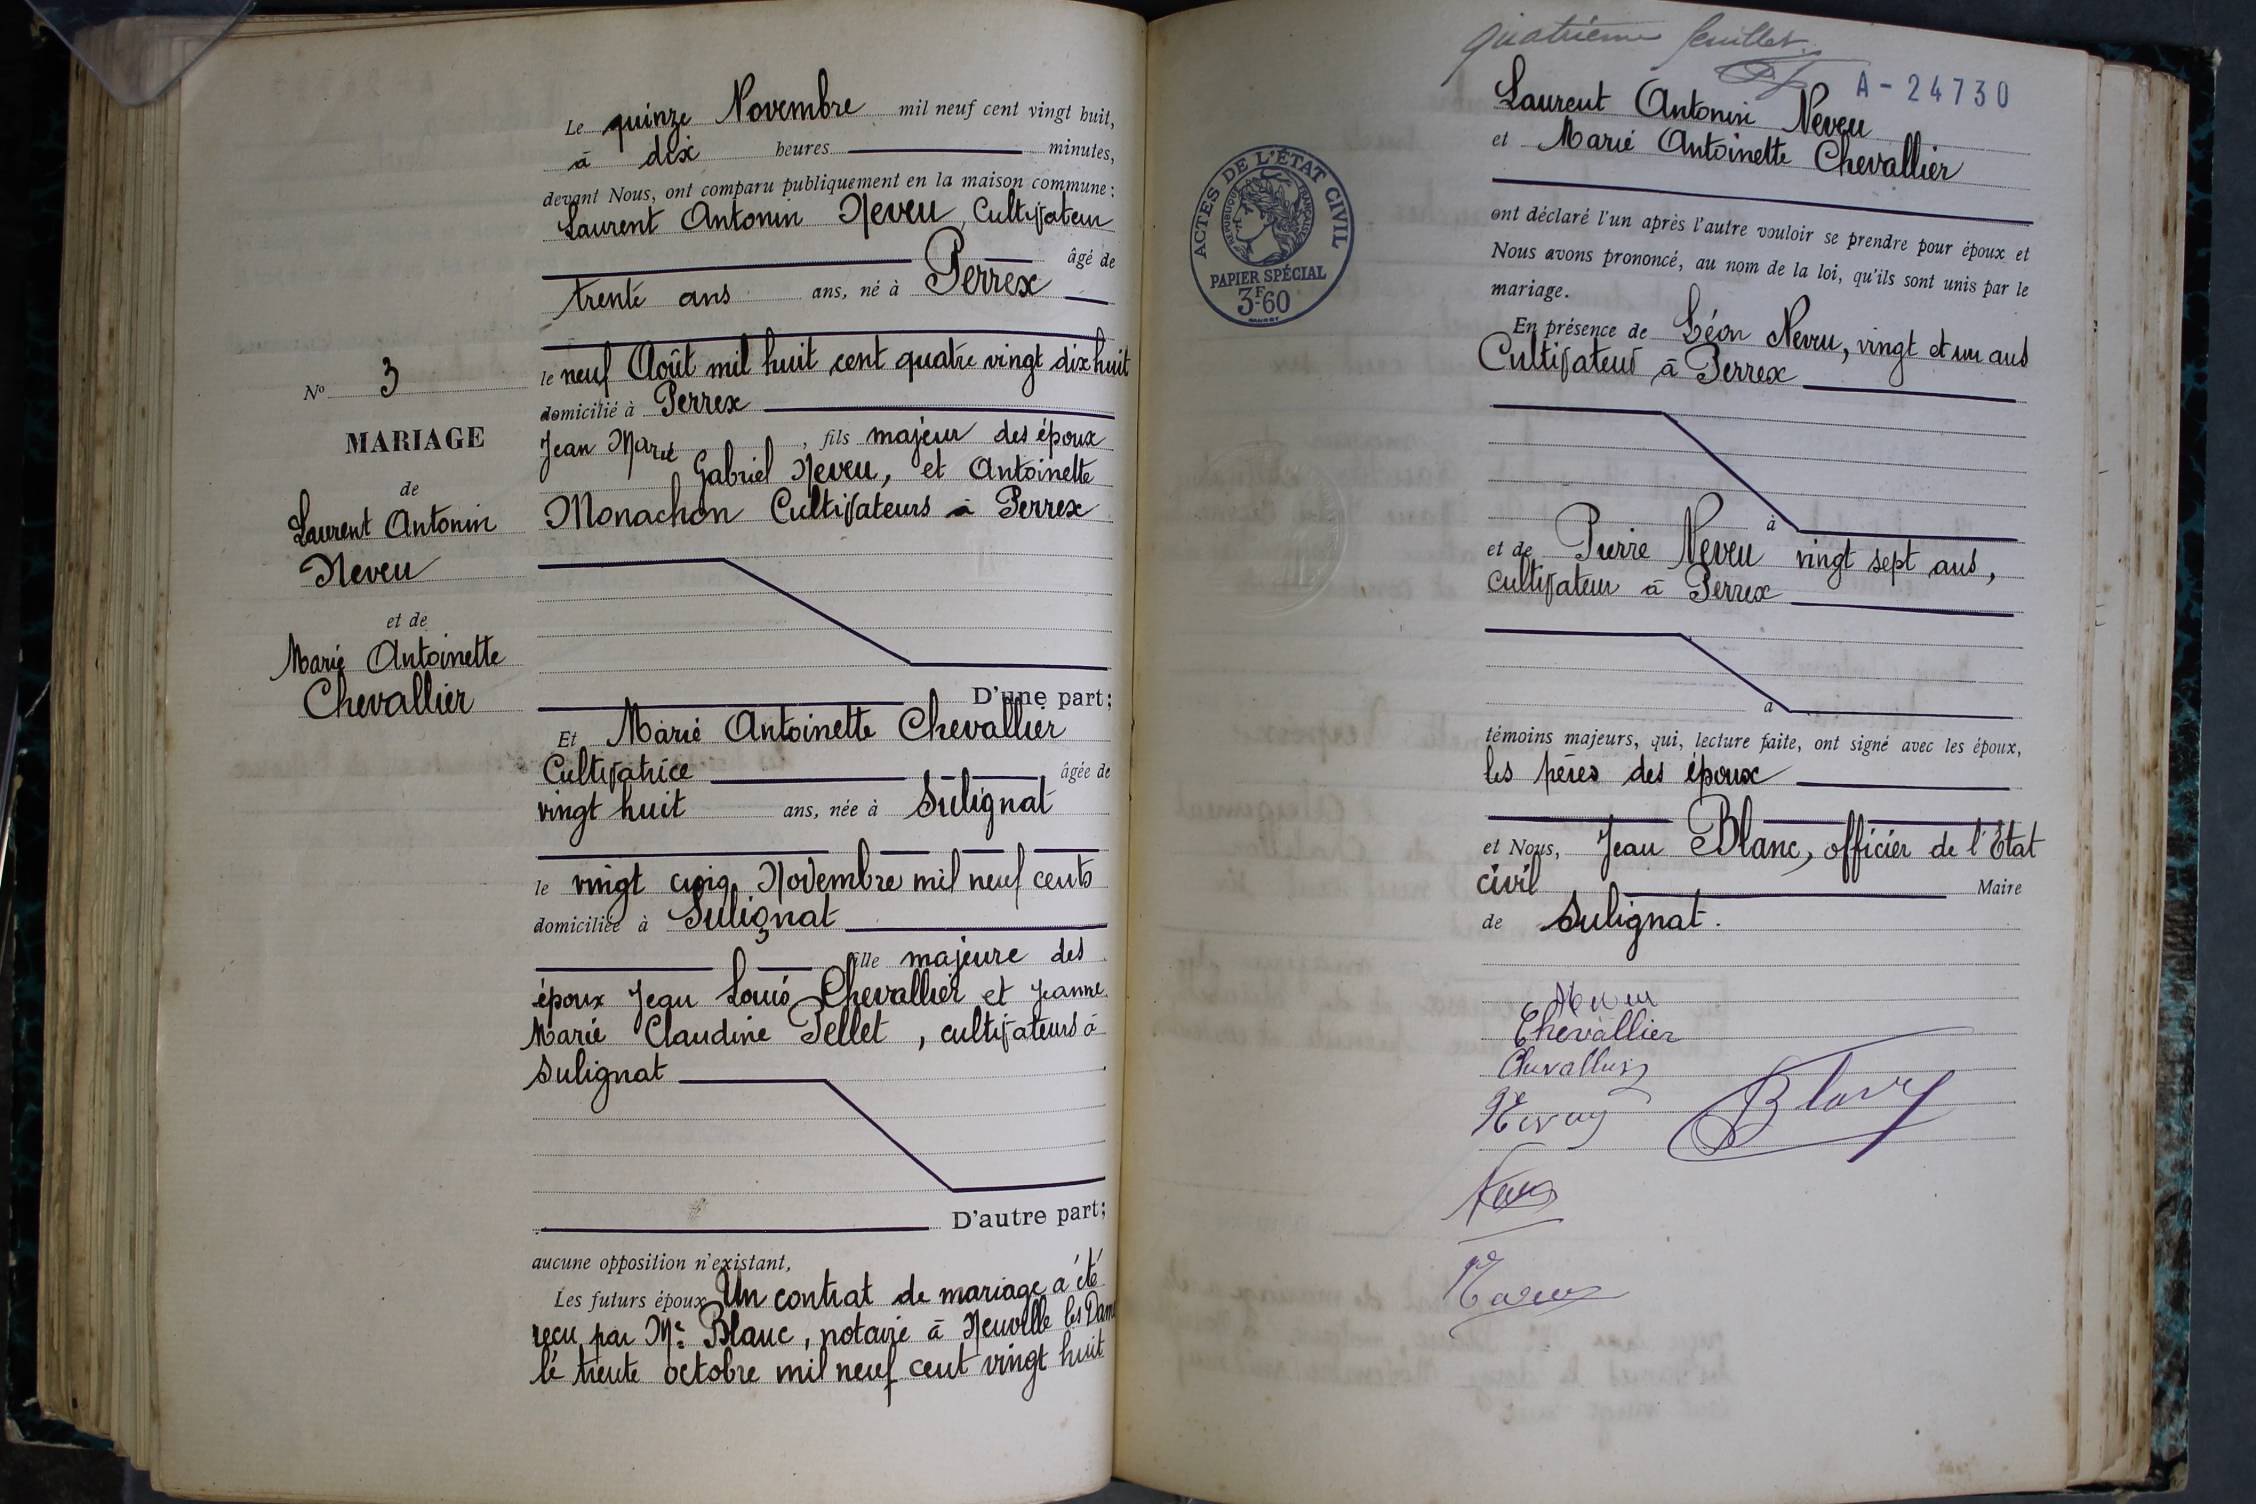 Le quinze Novembre mil neuf cent vingt huit,
à dix heures minutes,
devant Nous, ont comparu publiquement en la maison commune :
Laurent Antonin Neveu, Cultivateur
âgé de
trente ans ans, né à Perrex
le neuf Août mil huit cent quatre vingt dix huit
domicilié à Perrex
Jean Marie, fils majeur des époux
Gabriel Neveu, et Antoinette
Monachon Cultivateurs à Perrex
D'une part;
Nº 3
MARIAGE
de
Laurent Antonin
Neveu
et de
Marie Antoinette
Chevallier
Et Marie Antoinette Chevallier
Cultivatrice âgée de
vingt huit ans, née à Sulignat
le vingt cinq Novembre mil neuf cents
domiciliée à Sulignat
fille majeure des
époux Jean Louis Chevallier et Jeanne
Marie Claudine Pellet, cultivateurs à
Sulignat
D'autre part;
aucune opposition n'existant,
Les futurs époux Un contrat de mariage a été
reçu par Me Blanc, notaire à Neuville les Dames
le trente octobre mil neuf cent vingt huit
quatrième feuillet.
A-24730
Laurent Antonin Neveu
et Marie Antoinette Chevallier
ACTES DE L'ÉTAT CIVIL
RÉPUBLIQUE FRANÇAISE
PAPIER SPÉCIAL
3F60
ont déclaré l'un après l'autre vouloir se prendre pour époux et
Nous avons prononcé, au nom de la loi, qu'ils sont unis par le
mariage.
En présence de Léon Neveu, vingt et un ans
Cultivateur à Perrex
à
et de Pierre Neveu vingt sept ans,
cultivateur à Perrex
à
témoins majeurs, qui, lecture faite, ont signé avec les époux,
les pères des époux
et Nous, Jean Blanc, officier de l'Etat
civil Maire
de Sulignat.
Neveu
Chevallier
Chevallier
Neveu
Blanc